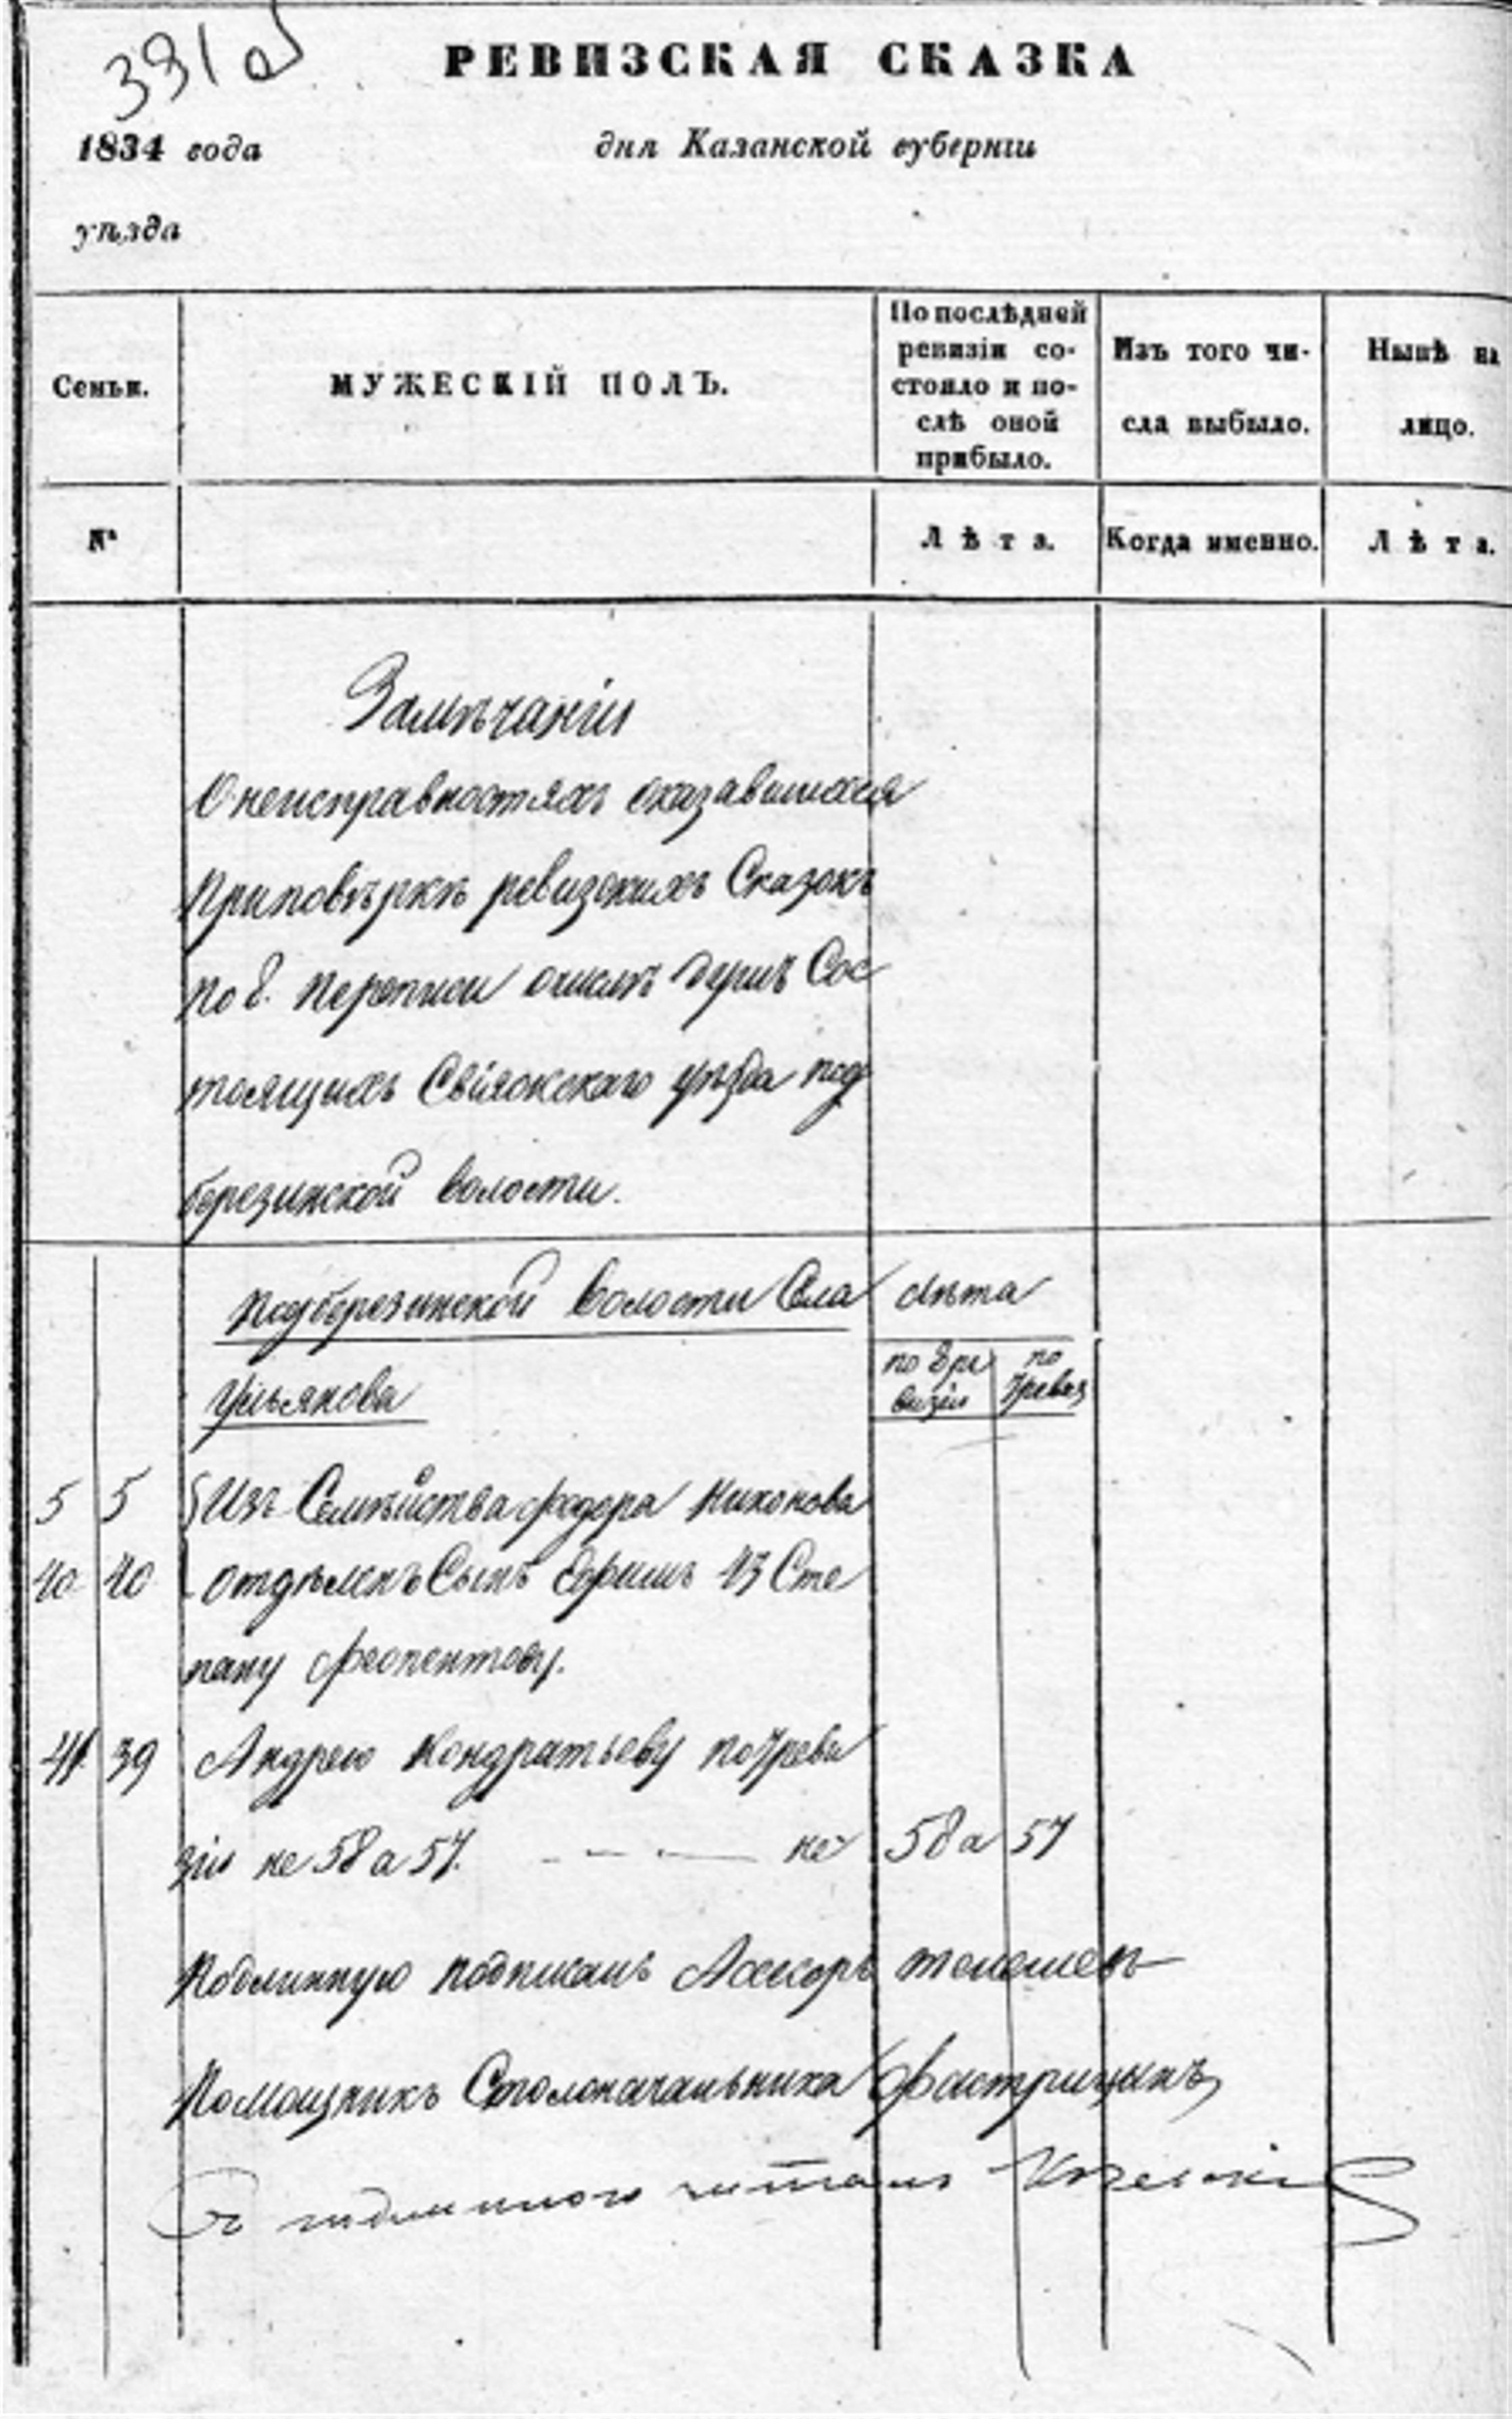 391 об
РЕВИЗСКАЯ СКАЗКА
1834 года дня Казанской губерніи
уѣзда
Семьи. МУЖЕСКІЙ ПОЛЪ. По послѣдней ревизіи состояло и послѣ оной прибыло. Изъ того числа выбыло. Нынѣ на лицо.
№ Лѣта. Когда именно. Лѣта.
Замѣчаніи
О неисправностяхъ оказавшихся
При повѣркѣ ревизскихъ Сказокъ
по 8. переписи о числѣ душъ Сос
тоящихъ Свіяжскаго уѣзда под
березинской волости.
Подберезинской волости Села лѣта
Ульянова по 8 ре визіи по 7 ревиз
5 5 Изъ Семѣйства федора Никонова
40 40 отдѣленъ Сынъ Ефимъ 13 Сте
пану
41 39 Андрею Кондратьеву по 7 реви
зіи не 58 а 57. не 58 а 57
Подлинную подписалъ Асесоръ
Помощникъ Столоначальника Фастрицынъ
Съ подлинного читалъ